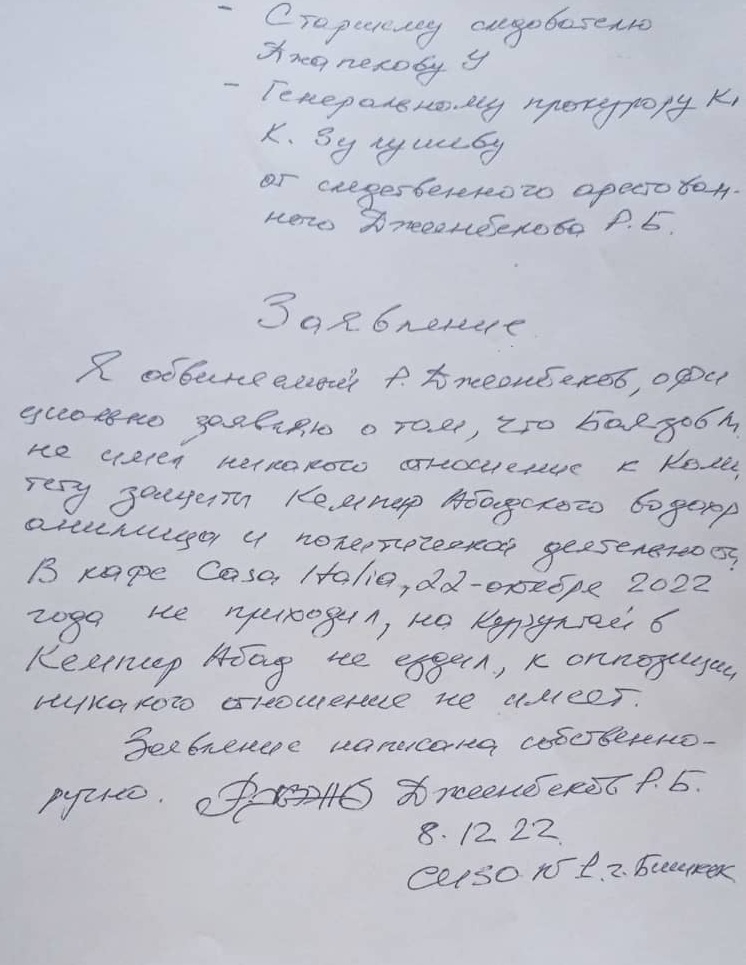 - Старшему следователю
Джапекову У
- Генеральному прокурору К
К. Зулушеву
от следственного арестован-
ного Джеенбекова Р.Б.
Заявление
Я обвиняемый Р. Джеенбеков, офи
циально заявляю о том, что Боязов М.
не имел никакого отношение к Коми
тету защиты Кемпир Абадского водохр
анилища и политической деятельност
В кафе Casa Italia, 22-октября 2022
года не приходил, на Курултай в
Кемпир Абад не ездил, к оппозиции
никакого отношение не имеет.
Заявление написана собственно-
ручно. Джеенбеков Р.Б.
8.12 22
СИЗО № 1. г. Бишкек